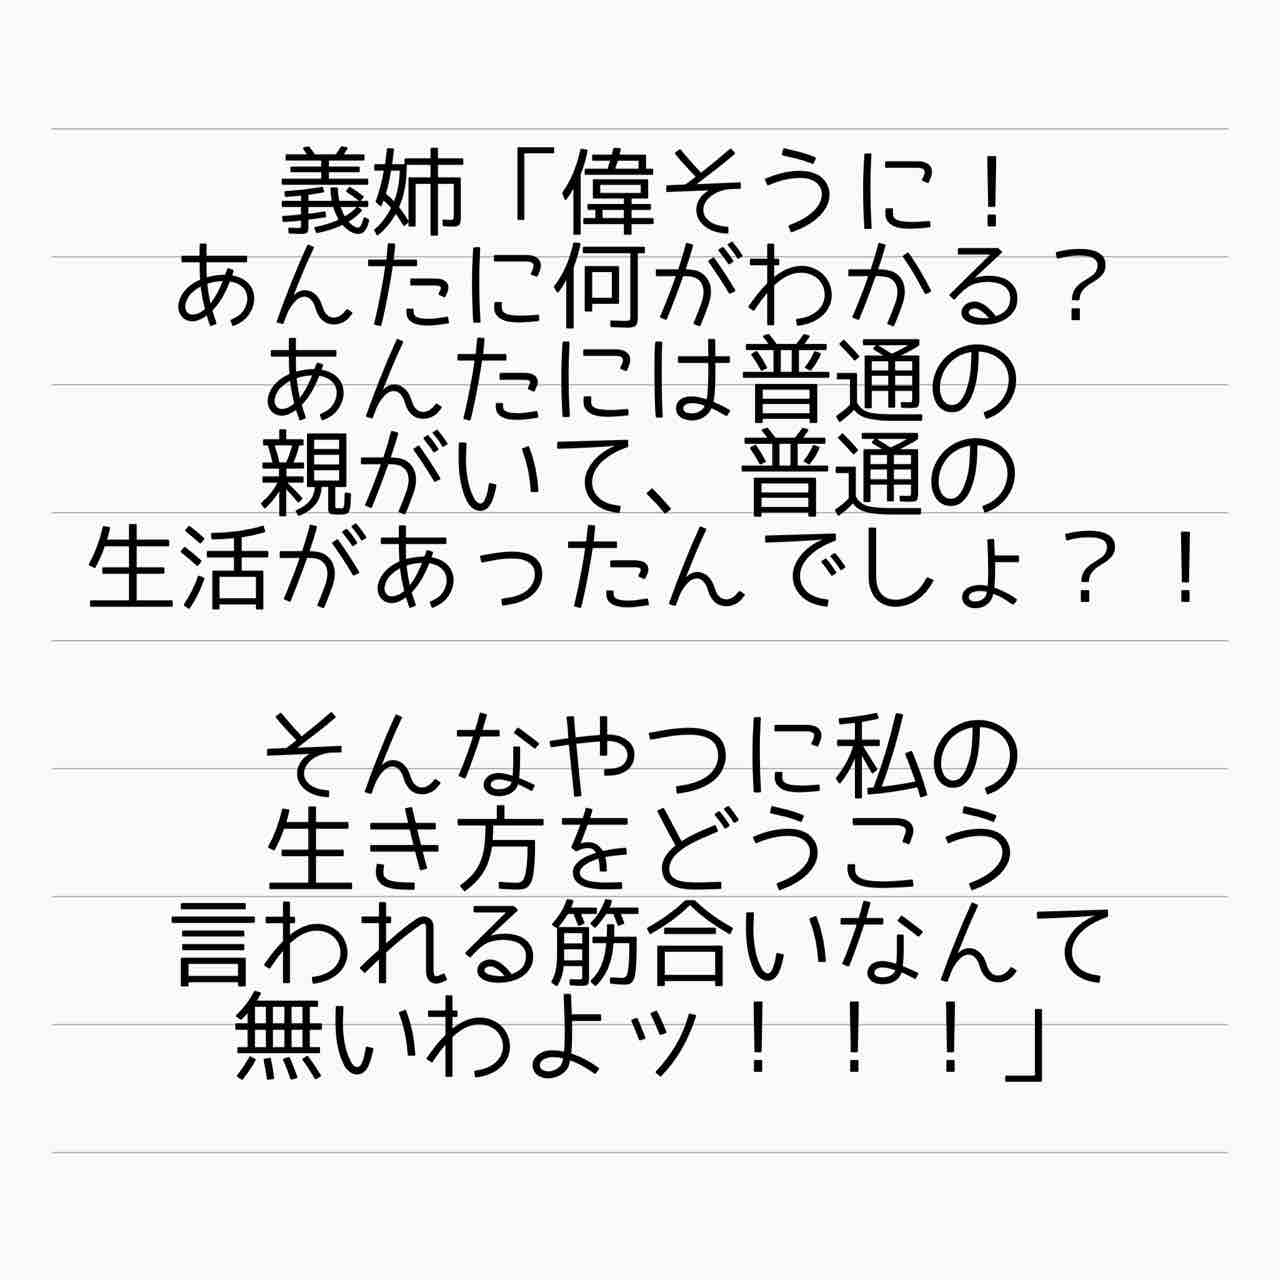 義姉「偉そうに！
あんたに何がわかる？
あんたには普通の
親がいて、普通の
生活があったんでしょ？！
そんなやつに私の
生き方をどうこう
言われる筋合いなんて
無いわよッ！！！」